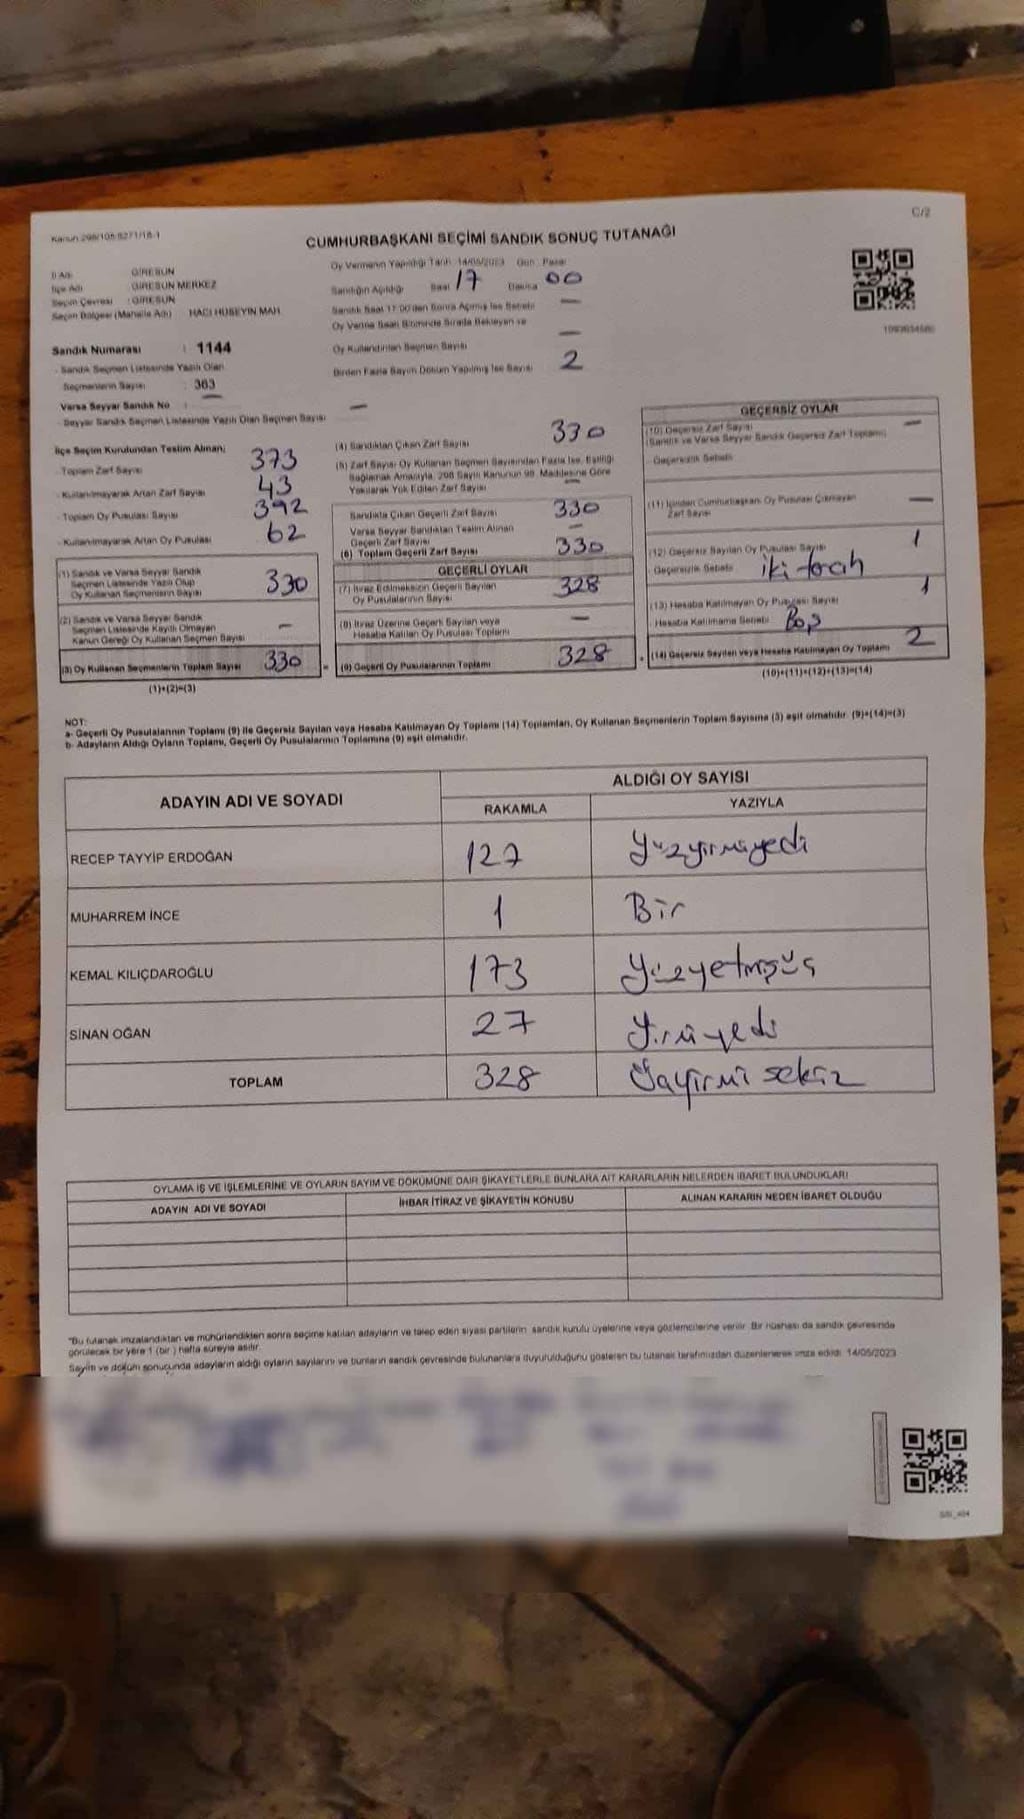 C/2
Kanun:298/105-6271/18-1
CUMHURBAŞKANI SEÇİMİ SANDIK SONUÇ TUTANAĞI
İl Adı : GİRESUN
İlçe Adı : GİRESUN MERKEZ
Seçim Çevresi : GİRESUN
Seçim Bölgesi (Mahalle Adı) HACI HÜSEYİN MAH
Oy Vermenin Yapıldığı Tarih: 14/05/2023 Gün: Pazar
Sandığın Açıldığı Saat 17 Dakika 00
Sandık Saat 17:00'den Sonra Açılmış İse Sebebi —
Oy Verme Saati Bitiminde Sırada Bekleyen ve
Oy Kullandırılan Seçmen Sayısı —
Birden Fazla Sayım Döküm Yapılmış İse Sayısı 2
Sandık Numarası : 1144
- Sandık Seçmen Listesinde Yazılı Olan
Seçmenlerin Sayısı : 363
Varsa Seyyar Sandık No : —
- Seyyar Sandık Seçmen Listesinde Yazılı Olan Seçmen Sayısı —
İlçe Seçim Kurulundan Teslim Alınan;
- Toplam Zarf Sayısı 373
- Kullanılmayarak Artan Zarf Sayısı 43
- Toplam Oy Pusulası Sayısı 392
- Kullanılmayarak Artan Oy Pusulası 62
(1) Sandık ve Varsa Seyyar Sandık
Seçmen Listesinde Yazılı Olup
Oy Kullanan Seçmenlerin Sayısı 330
(2) Sandık ve Varsa Seyyar Sandık
Seçmen Listesinde Kayıtlı Olmayan
Kanun Gereği Oy Kullanan Seçmen Sayısı —
(3) Oy Kullanan Seçmenlerin Toplam Sayısı 330
(1)+(2)=(3)
(4) Sandıktan Çıkan Zarf Sayısı 330
(5) Zarf Sayısı Oy Kullanan Seçmen Sayısından Fazla İse, Eşitliği
Sağlamak Amacıyla, 298 Sayılı Kanunun 98. Maddesine Göre
Yakılarak Yok Edilen Zarf Sayısı —
Sandıkta Çıkan Geçerli Zarf Sayısı 330
Varsa Seyyar Sandıktan Teslim Alınan
Geçerli Zarf Sayısı —
(6) Toplam Geçerli Zarf Sayısı 330
GEÇERLİ OYLAR
(7) İtiraz Edilmeksizin Geçerli Sayılan
Oy Pusulalarının Sayısı 328
(8) İtiraz Üzerine Geçerli Sayılan veya
Hesaba Katılan Oy Pusulası Toplamı —
(9) Geçerli Oy Pusulalarının Toplamı 328
GEÇERSİZ OYLAR
(10) Geçersiz Zarf Sayısı —
(Sandık ve Varsa Seyyar Sandık Geçersiz Zarf Toplamı)
- Geçersizlik Sebebi
(11) İçinden Cumhurbaşkanı Oy Pusulası Çıkmayan
Zarf Sayısı —
(12) Geçersiz Sayılan Oy Pusulası Sayısı 1
Geçersizlik Sebebi iki tercih
(13) Hesaba Katılmayan Oy Pusulası Sayısı 1
- Hesaba Katılmama Sebebi Boş
(14) Geçersiz Sayılan veya Hesaba Katılmayan Oy Toplamı 2
(10)+(11)+(12)+(13)=(14)
NOT:
a- Geçerli Oy Pusulalarının Toplamı (9) ile Geçersiz Sayılan veya Hesaba Katılmayan Oy Toplamı (14) Toplamları, Oy Kullanan Seçmenlerin Toplam Sayısına (3) eşit olmalıdır. (9)+(14)=(3)
b- Adayların Aldığı Oyların Toplamı, Geçerli Oy Pusulalarının Toplamına (9) eşit olmalıdır.
ADAYIN ADI VE SOYADI
ALDIĞI OY SAYISI
RAKAMLA YAZIYLA
RECEP TAYYİP ERDOĞAN 127 Yüzyirmiyedi
MUHARREM İNCE 1 Bir
KEMAL KILIÇDAROĞLU 173 Yüzyetmişüç
SİNAN OĞAN 27 Yirmiyedi
TOPLAM 328 sekiz
OYLAMA İŞ VE İŞLEMLERİNE VE OYLARIN SAYIM VE DÖKÜMÜNE DAİR ŞİKAYETLERLE BUNLARA AİT KARARLARIN NELERDEN İBARET BULUNDUKLARI
ADAYIN ADI VE SOYADI İHBAR İTİRAZ VE ŞİKAYETİN KONUSU ALINAN KARARIN NEDEN İBARET OLDUĞU
"Bu tutanak imzalandıktan ve mühürlendikten sonra seçime katılan adayların ve talep eden siyasi partilerin sandık kurulu üyelerine veya gözlemcilerine verilir. Bir nüshası da sandık çevresinde
görülecek bir yere 1 (bir ) hafta süreyle asılır.
Sayım ve döküm sonucunda adayların aldığı oyların sayılarını ve bunların sandık çevresinde bulunanlara duyurulduğunu gösteren bu tutanak tarafımızdan düzenlenerek imza edildi. 14/05/2023